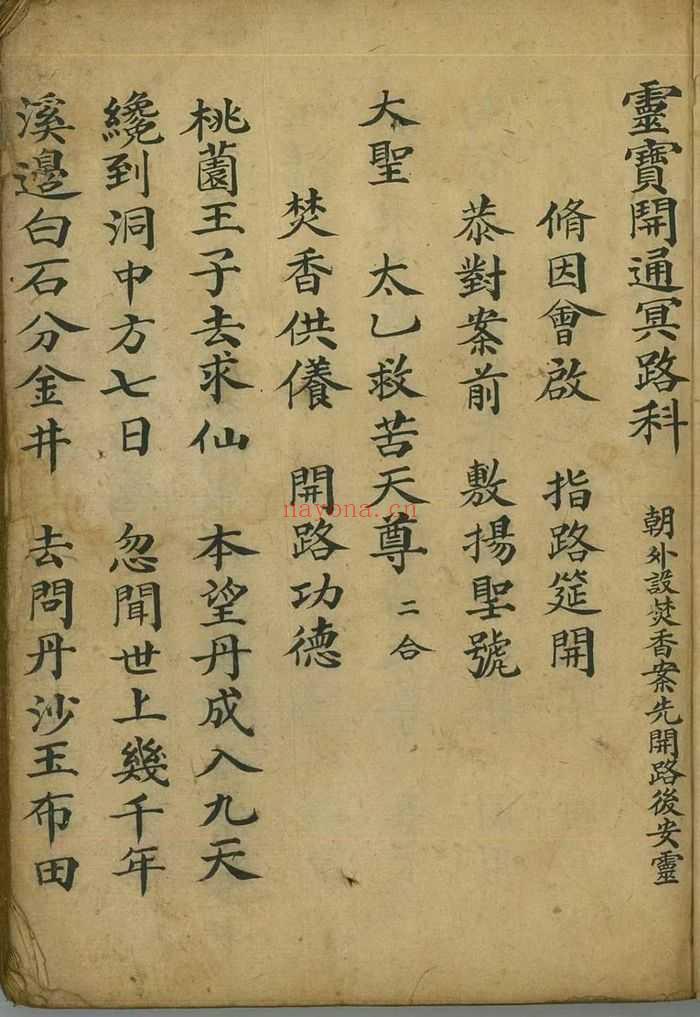 靈寶開通冥路科 朝外設焚香案先開路後安靈
脩因會啟 指路筵開
恭對案前 敷揚聖號
大聖 太乙救苦天尊 二合
焚香供養 開路功德
桃園王子去求仙 本望丹成入九天
纔到洞中方七日 忽聞世上幾千年
溪邊白石分金井 去問丹沙玉布田
nayona.cn